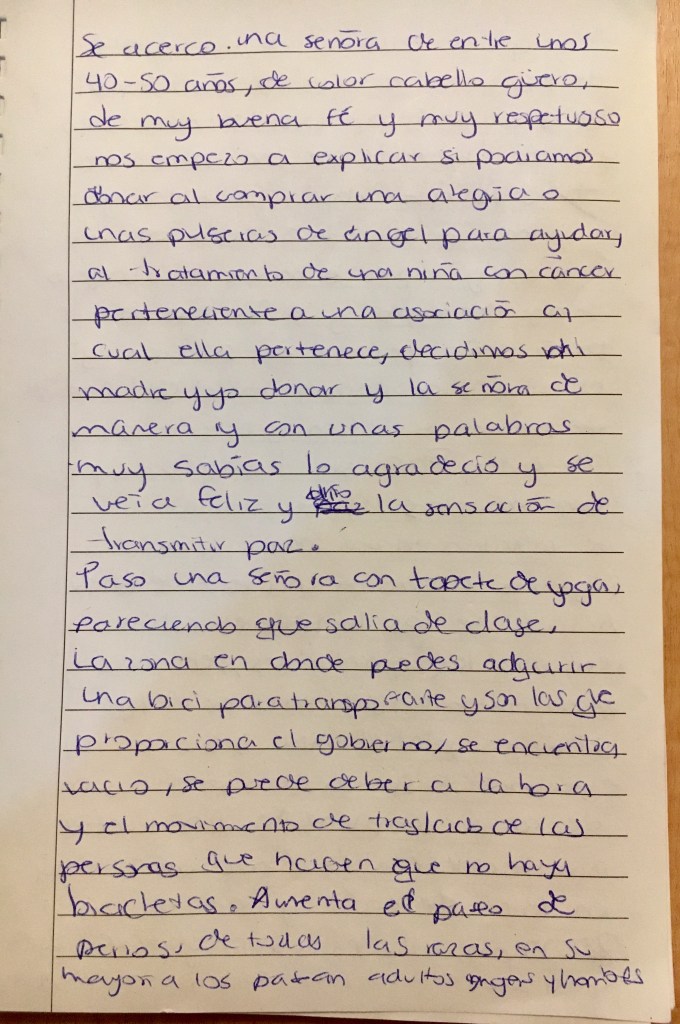 Se acerco una señora de entre unos
40-50 años, de color cabello güero,
de muy buena fé y muy respetuoso
nos empezo a explicar si podíamos
donar al comprar una alegría o
unas pulseras de ángel para ayudar,
al tratamiento de una niña con cáncer
perteneciente a una asociación al
cual ella pertenece, decidimos mi
madre y yo donar y la señora de
manera y con unas palabras
muy sabías lo agradeció y se
veía feliz y dio la sensación de
transmitir paz.
Paso una señora con tapete de yoga,
pareciendo que salía de clase,
La zona en donde puedes adquirir
una bici para transportarte y son las que
proporciona el gobierno, se encuentra
vacío, se puede deber a la hora
y el movimiento de traslado de las
personas que hacen que no haya
bicicletas. Aumenta el paseo de
perros, de todas las razas, en su
mayoría los pasean adultos y hombres